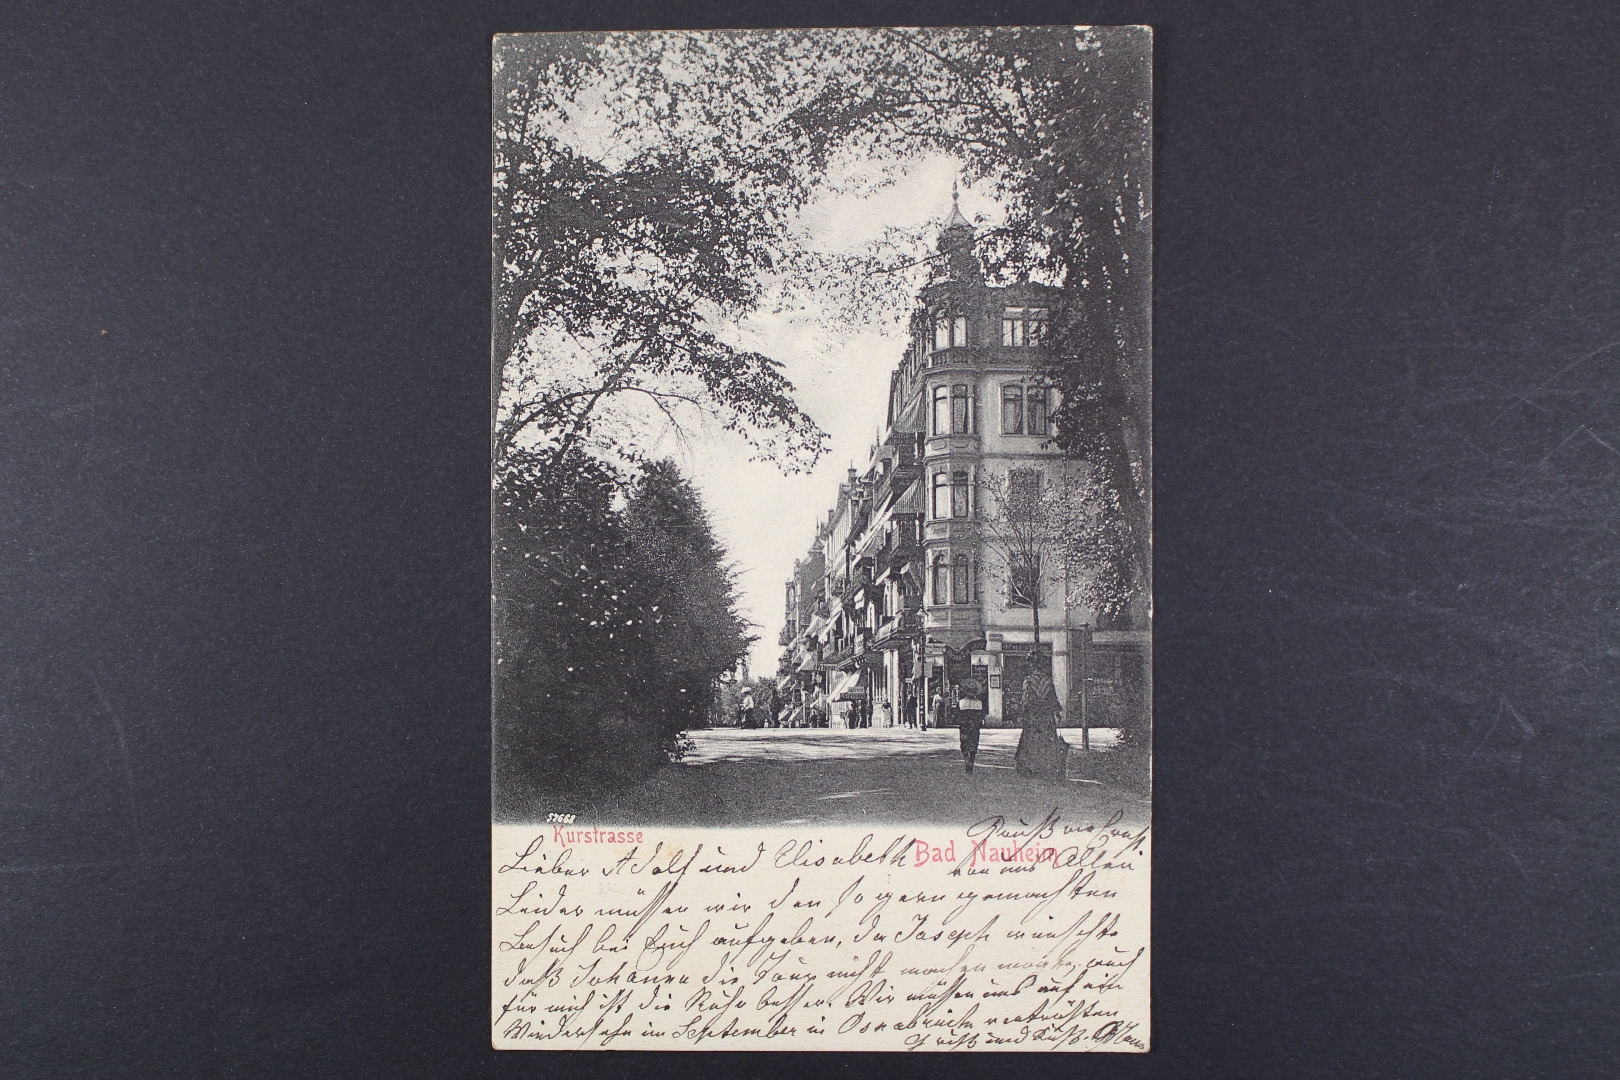 57668
Kurstrasse
Bad Nauheim
Lieber Adolf und Elisabeth
Leider müssen wir den so gern gemachten
Besuch bei Euch aufgeben, da Joseph wünschte
daß Johanna die Tour nicht machen möchte, auch
für mich ist die Ruhe besser. Wir müssen uns auf ein
Wiedersehn im September in Osnabrück vertrösten
Gruß und Kuß.
von uns Allen